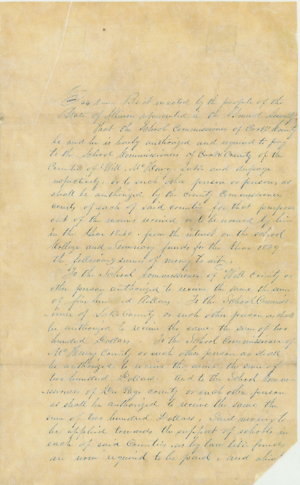 Be it enacted by the people of the
State of Illinois represented in the General Assembly
That the School Commissioner of Cook County
be and he is hereby authorized and required to pay
to the School Commissioners of County of the
Counties of Will McHenry Lake and Dupage
respectively or to such other person or persons as
shall be authorized by the County Commissioners
courts of each of said counties for that purpose
out of the monies received or to be received by him
in the year from the interest on the School
College and Seminary funds for the year 1839
the following sums of money to wit
To the School Commissioner of Will County or
other person authorized to receive the same the sum
of hundred Dollars. To the School Commis-
sioner of Lake County or such other person as shall
be authorized to receive the same the sum of two
hundred Dollars. To the School Commissioner of
McHenry County or such other person as shall
be authorized to receive the same the sum of
two hundred Dollars. And to the School Comm-
issioner of Du Page County or such other person
as shall be authorized to receive the same the
sum of two hundred Dollars. Said money to
be applied towards the support of schools in
each of said Counties as by law like funds
are now required to be paid, and